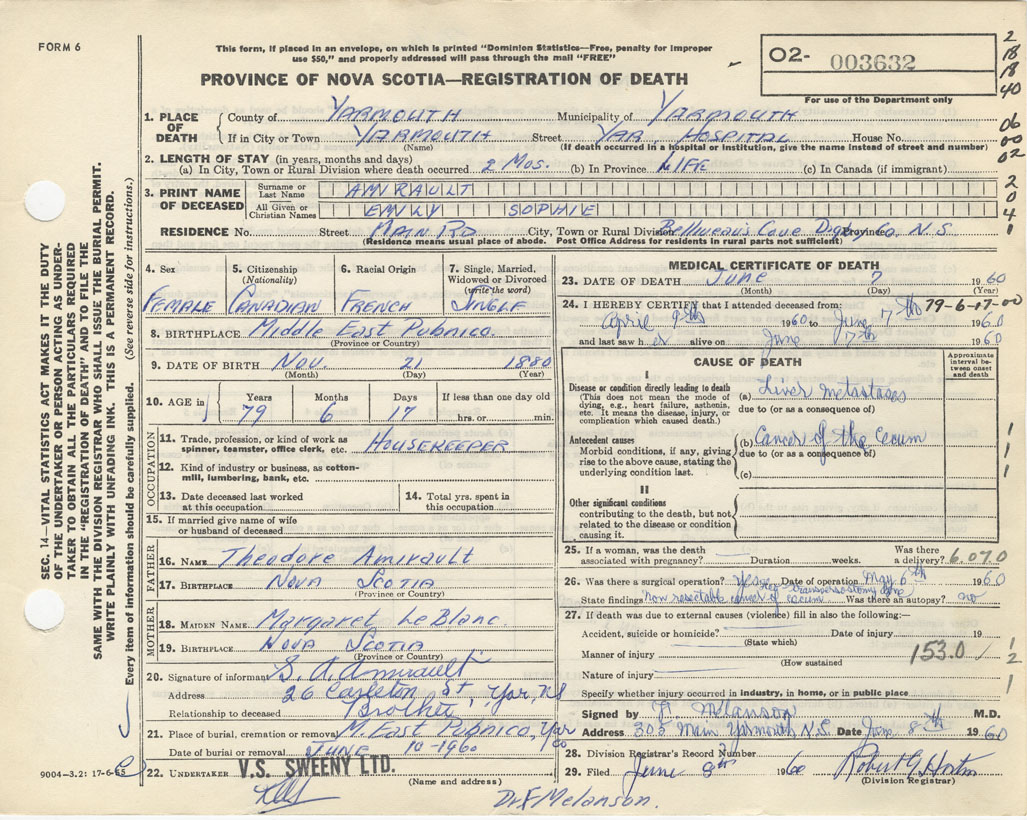 FORM 6
This form, if placed in an envelope, on which is printed "Dominion Statistics—Free, penalty for improper
use $50," and properly addressed will pass through the mail "FREE"
PROVINCE OF NOVA SCOTIA—REGISTRATION OF DEATH
O2- 003632
For use of the Department only
2
18
18
40
06
00
02
2
0
4
1
1. PLACE OF DEATH
County of YARMOUTH Municipality of YARMOUTH
If in City or Town YARMOUTH Street YAR. HOSPITAL House No.
(Name) (If death occurred in a hospital or institution, give the name instead of street and number)
2. LENGTH OF STAY (in years, months and days)
(a) In City, Town or Rural Division where death occurred 2 Mos. (b) In Province LIFE (c) In Canada (if immigrant)
3. PRINT NAME OF DECEASED
Surname or Last Name AMIRAULT
All Given or Christian Names EMILY SOPHIE
RESIDENCE No. Street MAIN RD City, Town or Rural Division Belliveau's Cove Digby Co. Province N.S.
(Residence means usual place of abode. Post Office Address for residents in rural parts not sufficient)
4. Sex FEMALE
5. Citizenship (Nationality) CANADIAN
6. Racial Origin FRENCH
7. Single, Married, Widowed or Divorced (write the word) SINGLE
8. BIRTHPLACE Middle East Pubnico.
(Province or Country)
9. DATE OF BIRTH Nov. 21 1880
(Month) (Day) (Year)
10. AGE in Years 79 Months 6 Days 17 If less than one day old hrs. or min.
OCCUPATION
11. Trade, profession, or kind of work as spinner, teamster, office clerk, etc. HOUSEKEEPER
12. Kind of industry or business, as cotton-mill, lumbering, bank, etc.
13. Date deceased last worked at this occupation
14. Total yrs. spent in this occupation
15. If married give name of wife or husband of deceased
FATHER
16. NAME Theodore Amirault
17. BIRTHPLACE NOVA SCOTIA
(Province or Country)
MOTHER
18. MAIDEN NAME Margaret LeBlanc.
19. BIRTHPLACE NOVA SCOTIA
(Province or Country)
20. Signature of informant S. A. Amirault
Address 26 Carleton St, Yar, NS
Relationship to deceased Brother
21. Place of burial, cremation or removal M. East Pubnico, Yar Co
Date of burial or removal JUNE 10-1960
22. UNDERTAKER V.S. SWEENY LTD.
(Name and address)
Dr F Melanson.
9004-3.2: 17-6-55
MEDICAL CERTIFICATE OF DEATH
23. DATE OF DEATH June 7 1960
(Month) (Day) (Year)
24. I HEREBY CERTIFY that I attended deceased from: 79-6-17-00
April 9th 1960 to June 7th 1960
and last saw her alive on June 7th 1960
CAUSE OF DEATH
Approximate interval between onset and death
I
Disease or condition directly leading to death
(This does not mean the mode of dying, e.g., heart failure, asthenia, etc. It means the disease, injury, or complication which caused death.)
(a) Liver metastases
due to (or as a consequence of)
Antecedent causes
Morbid conditions, if any, giving rise to the above cause, stating the underlying condition last.
(b) Cancer of the Cecum
due to (or as a consequence of)
(c)
1
1
1
II
Other significant conditions
contributing to the death, but not related to the disease or condition causing it.
25. If a woman, was the death associated with pregnancy? Duration weeks. Was there a delivery? 6.07.0
26. Was there a surgical operation? Yes Date of operation May 6th 1960
State findings non resectable cancer of cecum Was there an autopsy? no
27. If death was due to external causes (violence) fill in also the following:—
Accident, suicide or homicide? Date of injury 19
(State which)
Manner of injury
(How sustained)
153.0
1
2
1
Nature of injury
Specify whether injury occurred in industry, in home, or in public place
Signed by F Melanson M.D.
Address 305 Main Yarmouth N.S. Date June 8th 1960
28. Division Registrar's Record Number
29. Filed June 8th 1960 Robert G Horton
(Division Registrar)
SEC. 14—VITAL STATISTICS ACT MAKES IT THE DUTY
OF THE UNDERTAKER OR PERSON ACTING AS UNDER-
TAKER TO OBTAIN ALL THE PARTICULARS REQUIRED
IN THE "REGISTRATION OF DEATH" AND TO FILE THE
SAME WITH THE DIVISION REGISTRAR WHO SHALL ISSUE THE BURIAL PERMIT.
WRITE PLAINLY WITH UNFADING INK. THIS IS A PERMANENT RECORD.
Every item of information should be carefully supplied. (See reverse side for instructions.)